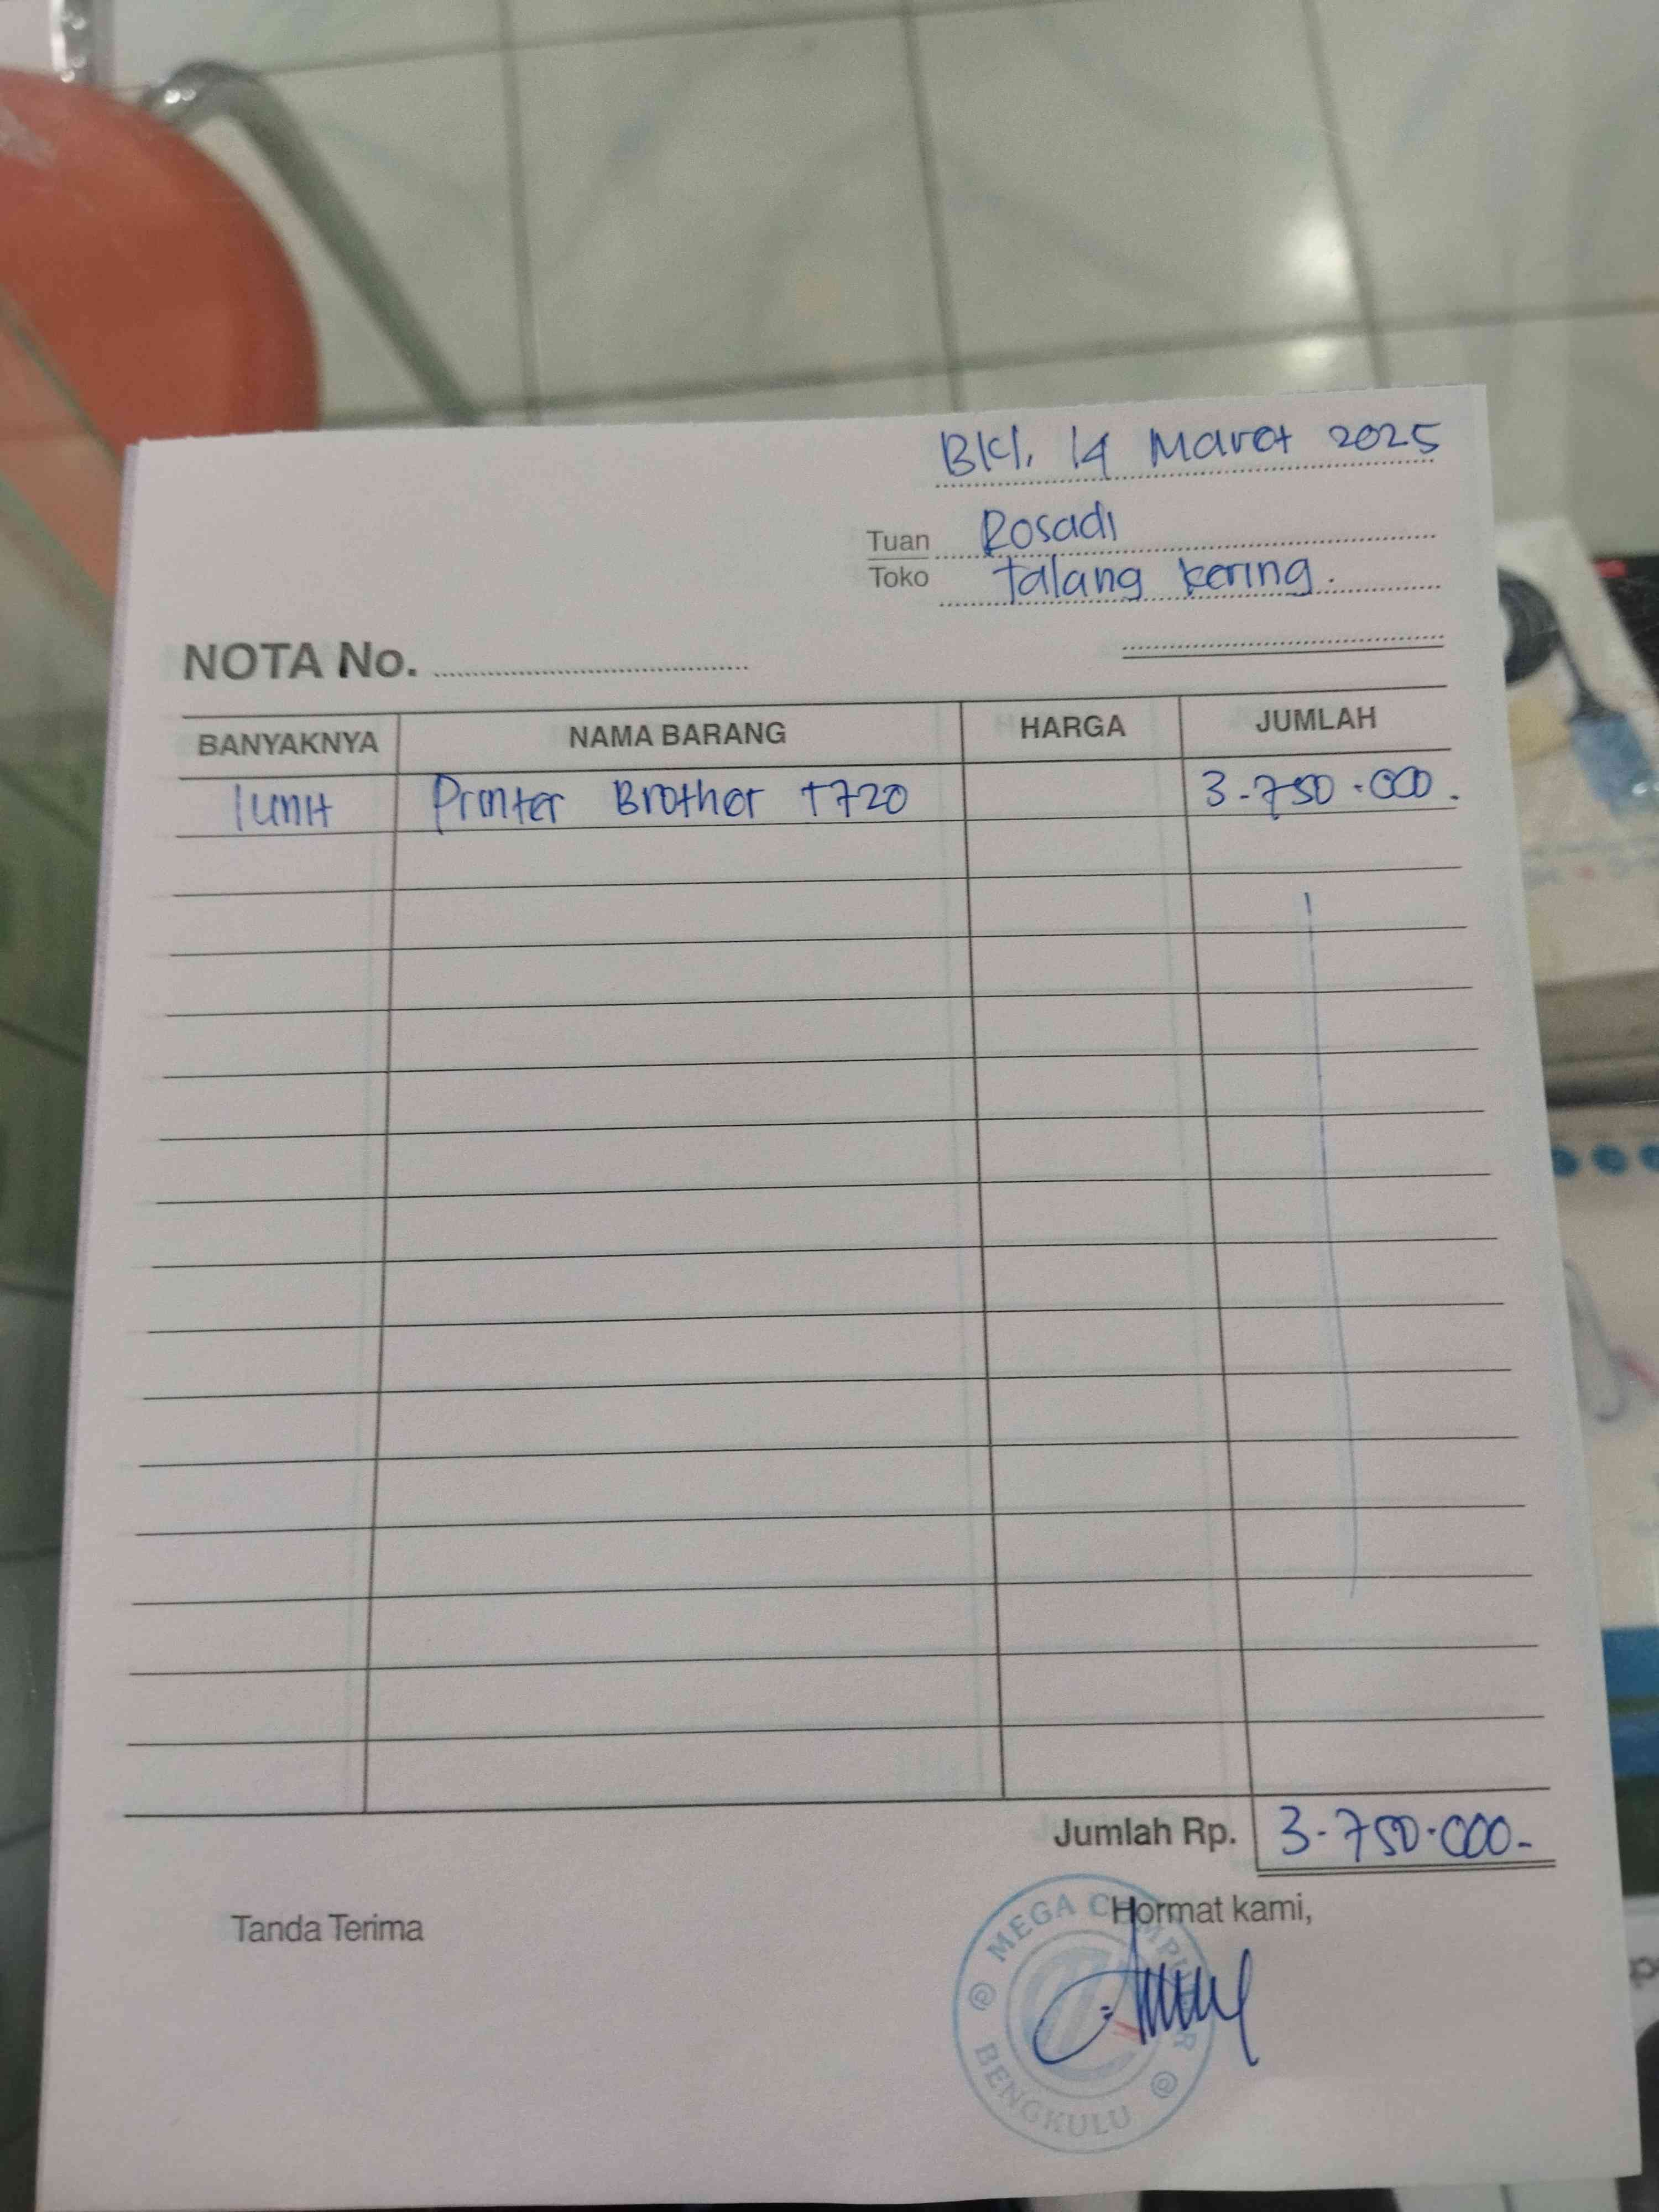 Bkl, 14 Maret 2025
Tuan Rosadi
Toko Talang Kering.
NOTA No.
BANYAKNYA NAMA BARANG HARGA JUMLAH
1 unit Printer Brother T720 3.750.000.
Jumlah Rp. 3.750.000-
Tanda Terima Hormat kami,
MEGA COMPUTER
BENGKULU